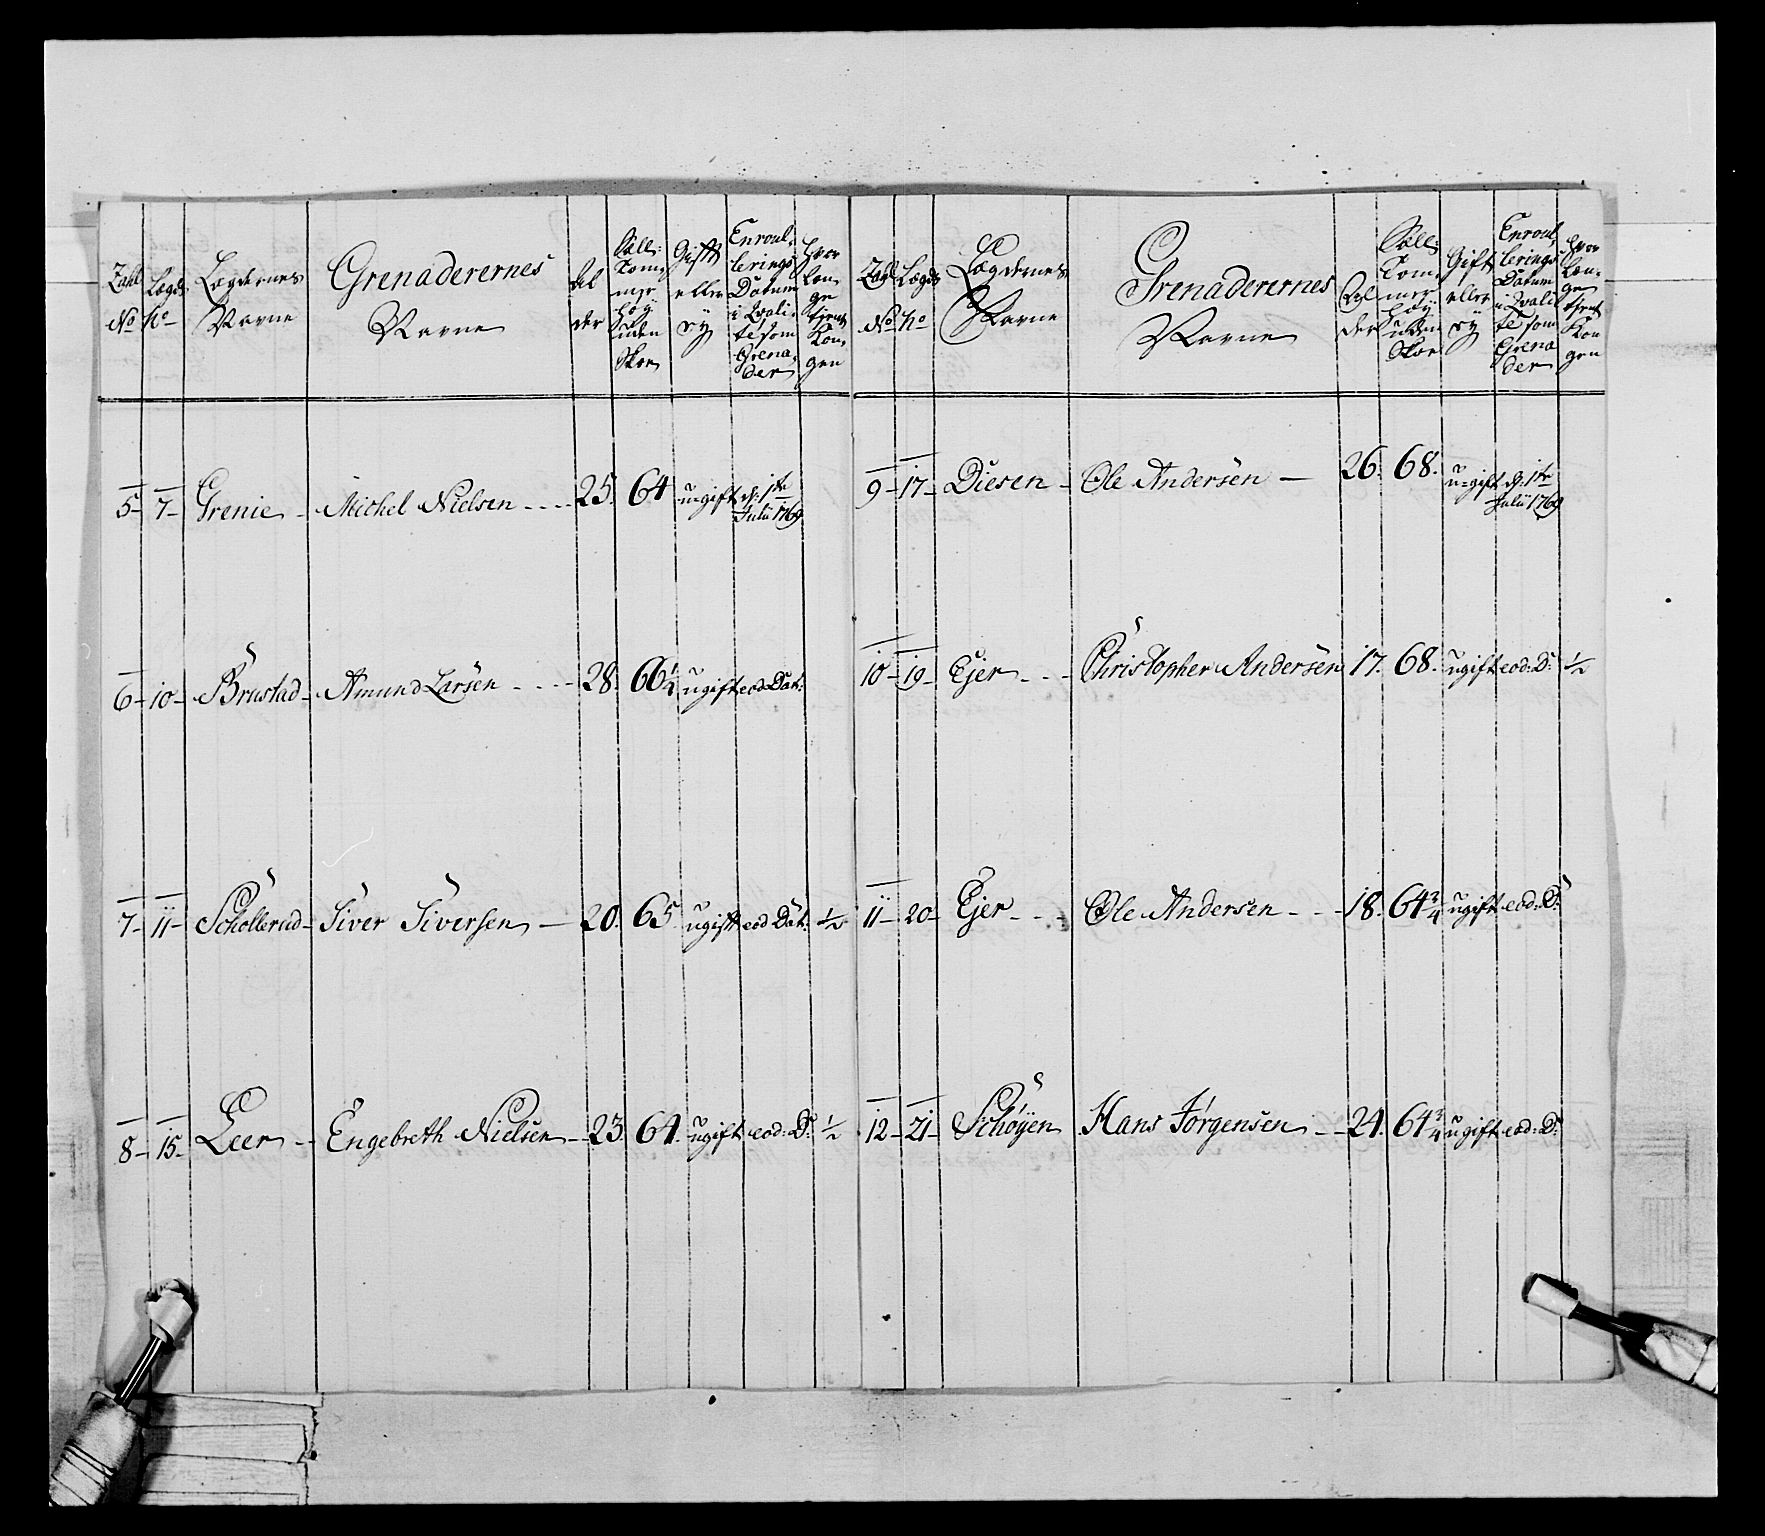 Zahl No | Lægds No | Lægdernes Navne | Grenaderernes Navne | Al der | Søll: Tom mer høy uden Skoe | Gift eller ey | Enroul: lerings Datum i Qvali te som Grena der | Hvor læn ge tjent Kon gen
5 | 7 | Grenie | Michel Nielsen | 25. | 64 | u-gift | d: 1te Julii 1769
6 | 10 | Brustad | Amund Larsen | 28. | 66 1/2 | ugift | eod Dat:
7 | 11 | Schollerud | Siver Siversen | 20. | 65. | ugift | eod Dat: | 1/2
8 | 15 | Leer | Engebreth Nielsen | 23. | 64. | ugift | eod: D: | 1/2
Zahl No | Lægds No | Lægdernes Navne | Grenaderernes Navne | Al der | Søll: Tom mer høy uden Skoe | Gift eller ey | Enroul: lerings Datum i Qvali te som Grena der | Hvor læn ge tjent Kon gen
9 | 17 | Diesen | Ole Andersen | 26. | 68. | u-gift | d: 1te Julii 1769
10 | 19 | Ejer | Christopher Andersen | 17. | 68. | ugift | eod: D: | 1/2
11 | 20 | Ejer | Ole Andersen | 18. | 64 3/4 | ugift | eod: D:
12 | 21 | Schöyen | Hans Jörgensen | 24. | 64 3/4 | ugift | eod: D: